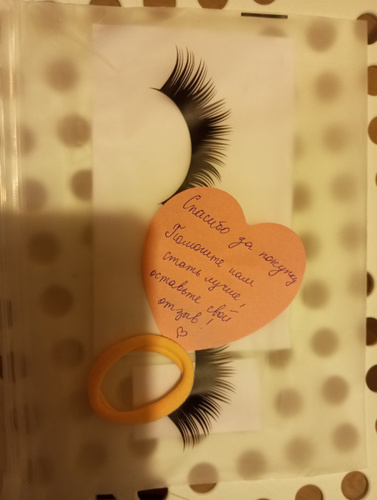 Спасибо за покупку
Помогите нам
стать лучше!
оставьте свой
отзыв!